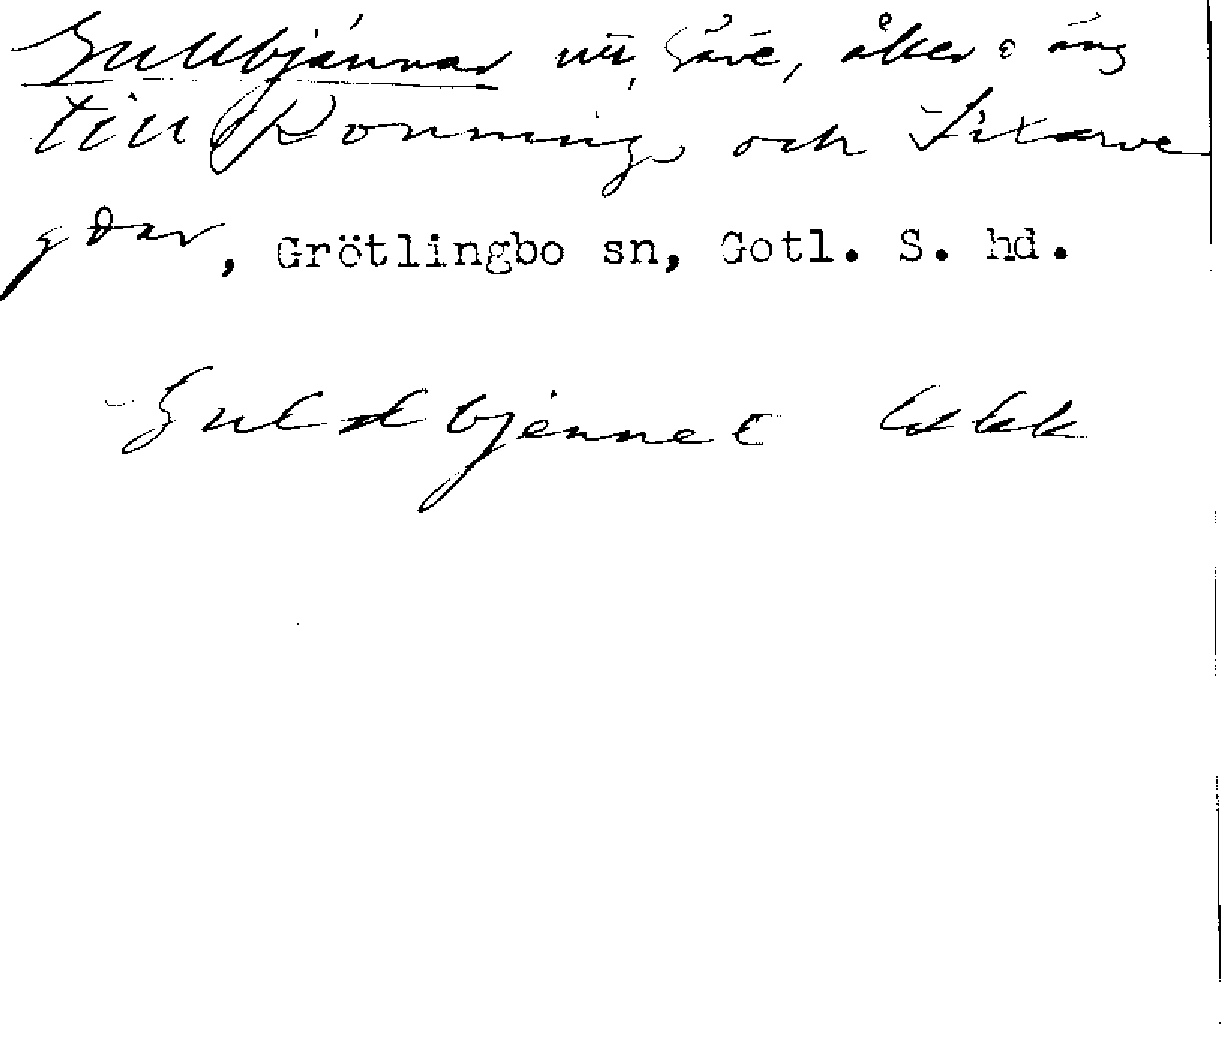 Gullbjännar åker o äng
till Ronnings och Sixarve
gdar, Grötlingbo sn, Gotl. S. hd.
Guldbjennet